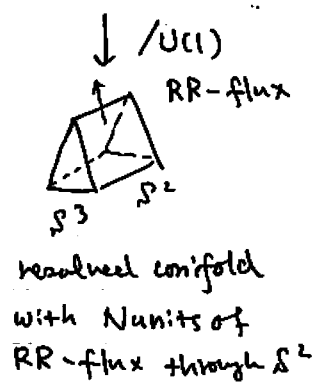 /U(1)
RR-flux
S³ S²
resolved conifold
with N units of
RR-flux through S²